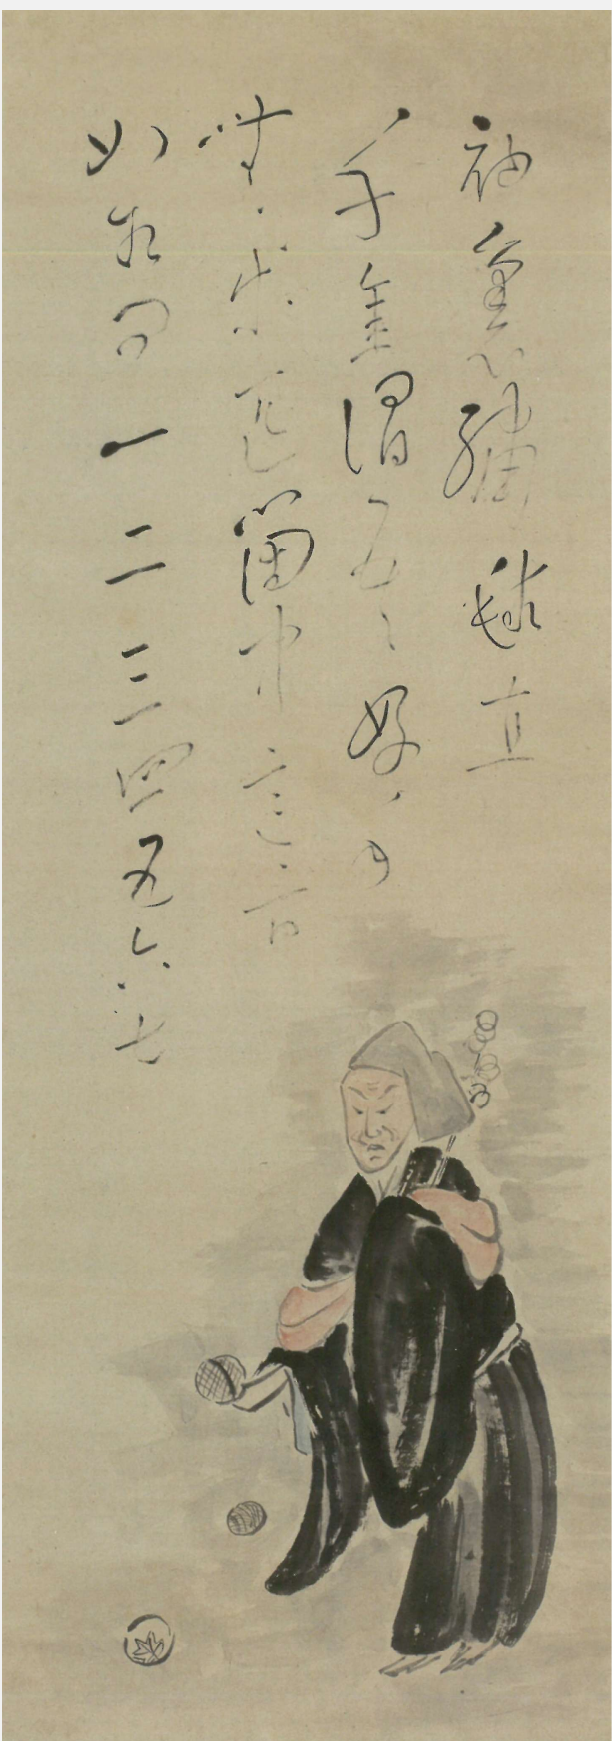 袖裏繍毬直
千金謂好手
無等匹箇中意旨
如相問一二三四五六七